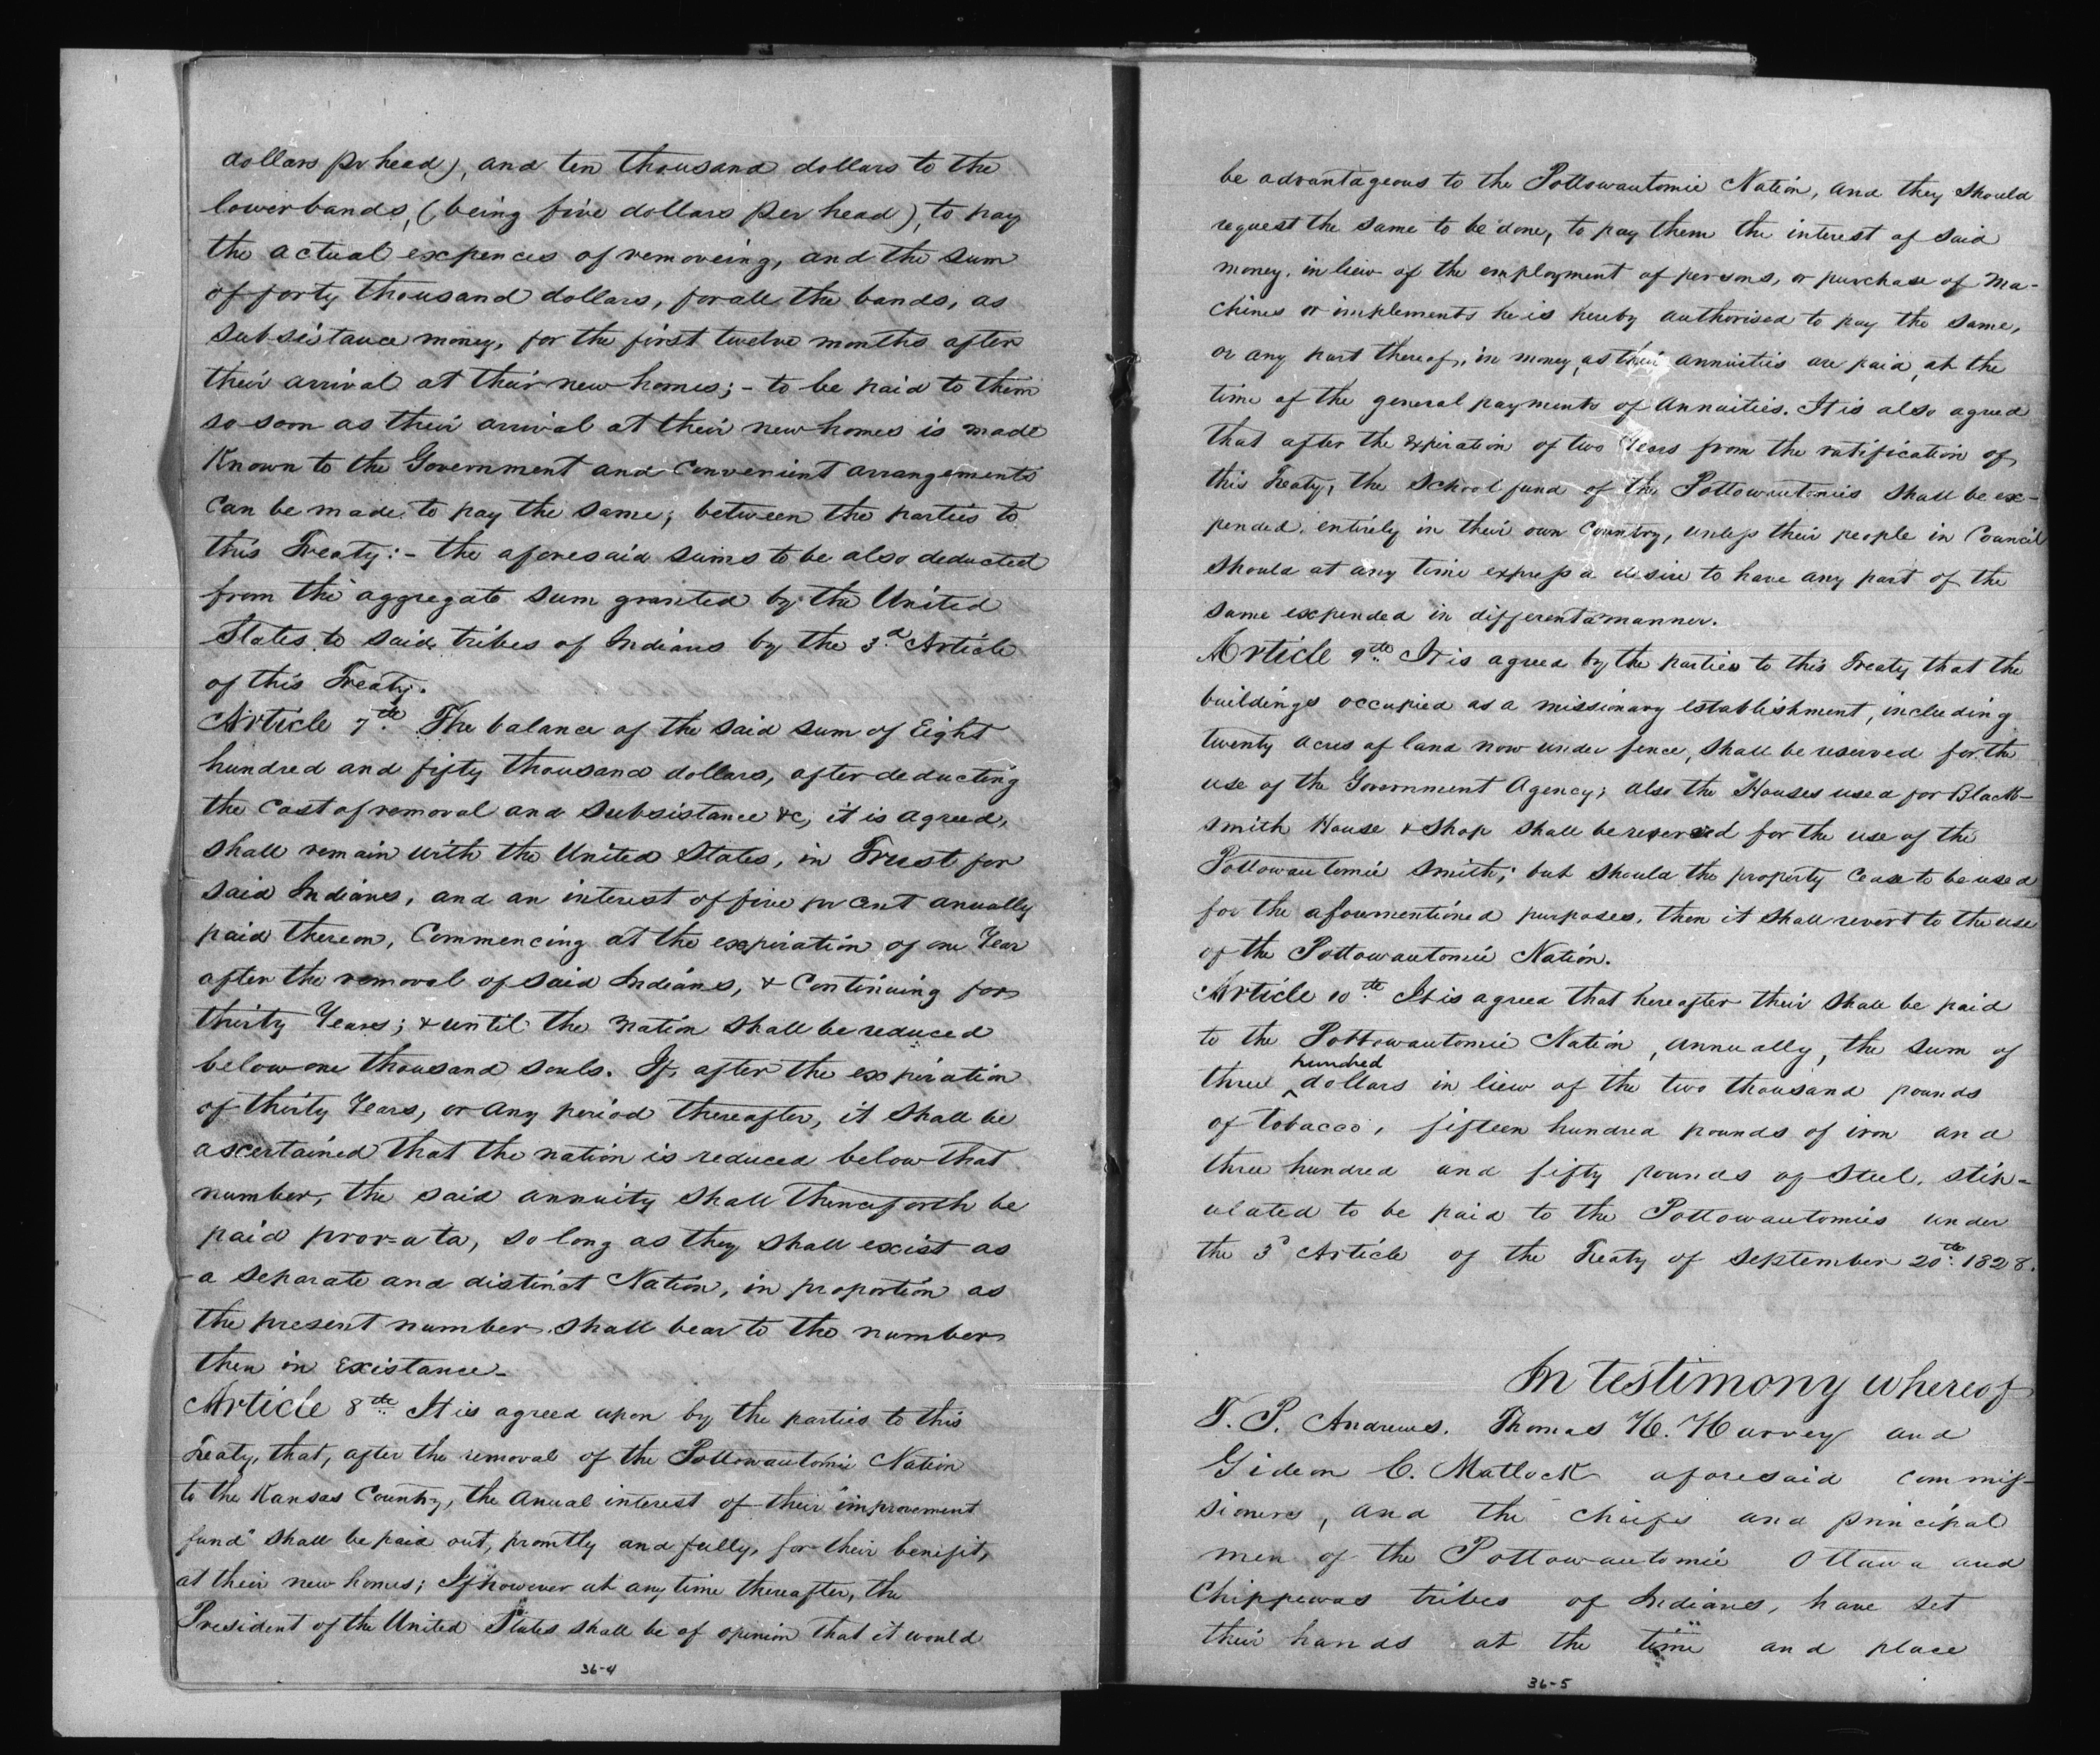 dollars pr head), and ten thousand dollars to the
lower bands, (being five dollars per head), to pay
the actual expences of removeing, and the sum
of forty thousand dollars, for all the bands, as
subsistance money, for the first twelve months after
their arrival at their new homes; - to be paid to them
so soon as their arrival at their new homes is made
Known to the Government and convenient arrangements
can be made to pay the same; between the parties to
this Treaty: - the aforesaid sums to be also deducted
from the aggregate sum granted by the United
States to said tribes of Indians by the 3d. Article
of this Treaty.
Article 7th. The balance of the said sum of Eight
hundred and fifty thousand dollars, after deducting
the cost of removal and subsistance &c, it is agreed,
shall remain with the United States, in Trust for
said Indians, and an interest of five pr cent anually
paid thereon, Commencing at the expiration of one Year
after the removal of said Indians, & Continuing for
thirty Years; & until the nation shall be reduced
below one thousand souls. If, after the expiration
of thirty Years, or any period thereafter, it shall be
ascertained that the nation is reduced below that
number, the said annuity shall thenceforth be
paid pror=ata, so long as they shall exist as
a separate and distinct Nation, in proportion as
the present number shall bear to the number
then in Existance -
Article 8th. It is agreed upon by the parties to this
Treaty, that, after the removal of the Pottowautomie Nation
to the Kansas Country, the anual interest of their "improvement
fund" shall be paid out, promtly and fully, for their benifit,
at their new homes; If however at any time thereafter, the
President of the United States shall be of opinion that it would
36-4
be advantageous to the Pottowautomie Nation, and they should
request the same to be done, to pay them the interest of said
money, in lieu of the employment of persons, or purchase of Ma-
chines or implements he is hereby authorised to pay the same,
or any part thereof, in money, as their annuities are paid, at the
time of the general payments of Annuities. It is also agreed
that after the expiration of two Years from the ratification of
this Treaty, the School fund of the Pottowautomies shall be ex-
pended, entirely in their own Country, unless their people in Council
should at any time express a desire to have any part of the
same expended in different a manner.
Article 9th. It is agreed by the parties to this Treaty that the
buildings occupied as a missionary establishment, including
twenty acres of land now under fence, shall be reserved for the
use of the Government Agency; also the Houses used for Black-
smith House & shop shall be reserved for the use of the
Pottowautomie Smith; but should the property cease to be used
for the aforementioned purposes, then it shall revert to the use
of the Pottowautomie Nation.
Article 10th. It is agreed that hereafter their shall be paid
to the Pottowautomie Nation, annually, the sum of
three ^hundred dollars in lieu of the two thousand pounds
of tobacco, fifteen hundred pounds of iron and
three hundred and fifty pounds of steel, stip-
ulated to be paid to the Pottowautomies under
the 3d Article of the Treaty of September 20th. 1828.
In testimony whereof
T. P. Andrews. Thomas H. Harvey and
Gideon C. Matlock aforesaid commis-
sioners, and the chiefs and principal
men of the Pottowautomie Ottawa and
Chippewas tribes of Indians, have set
their hands at the time and place
36-5